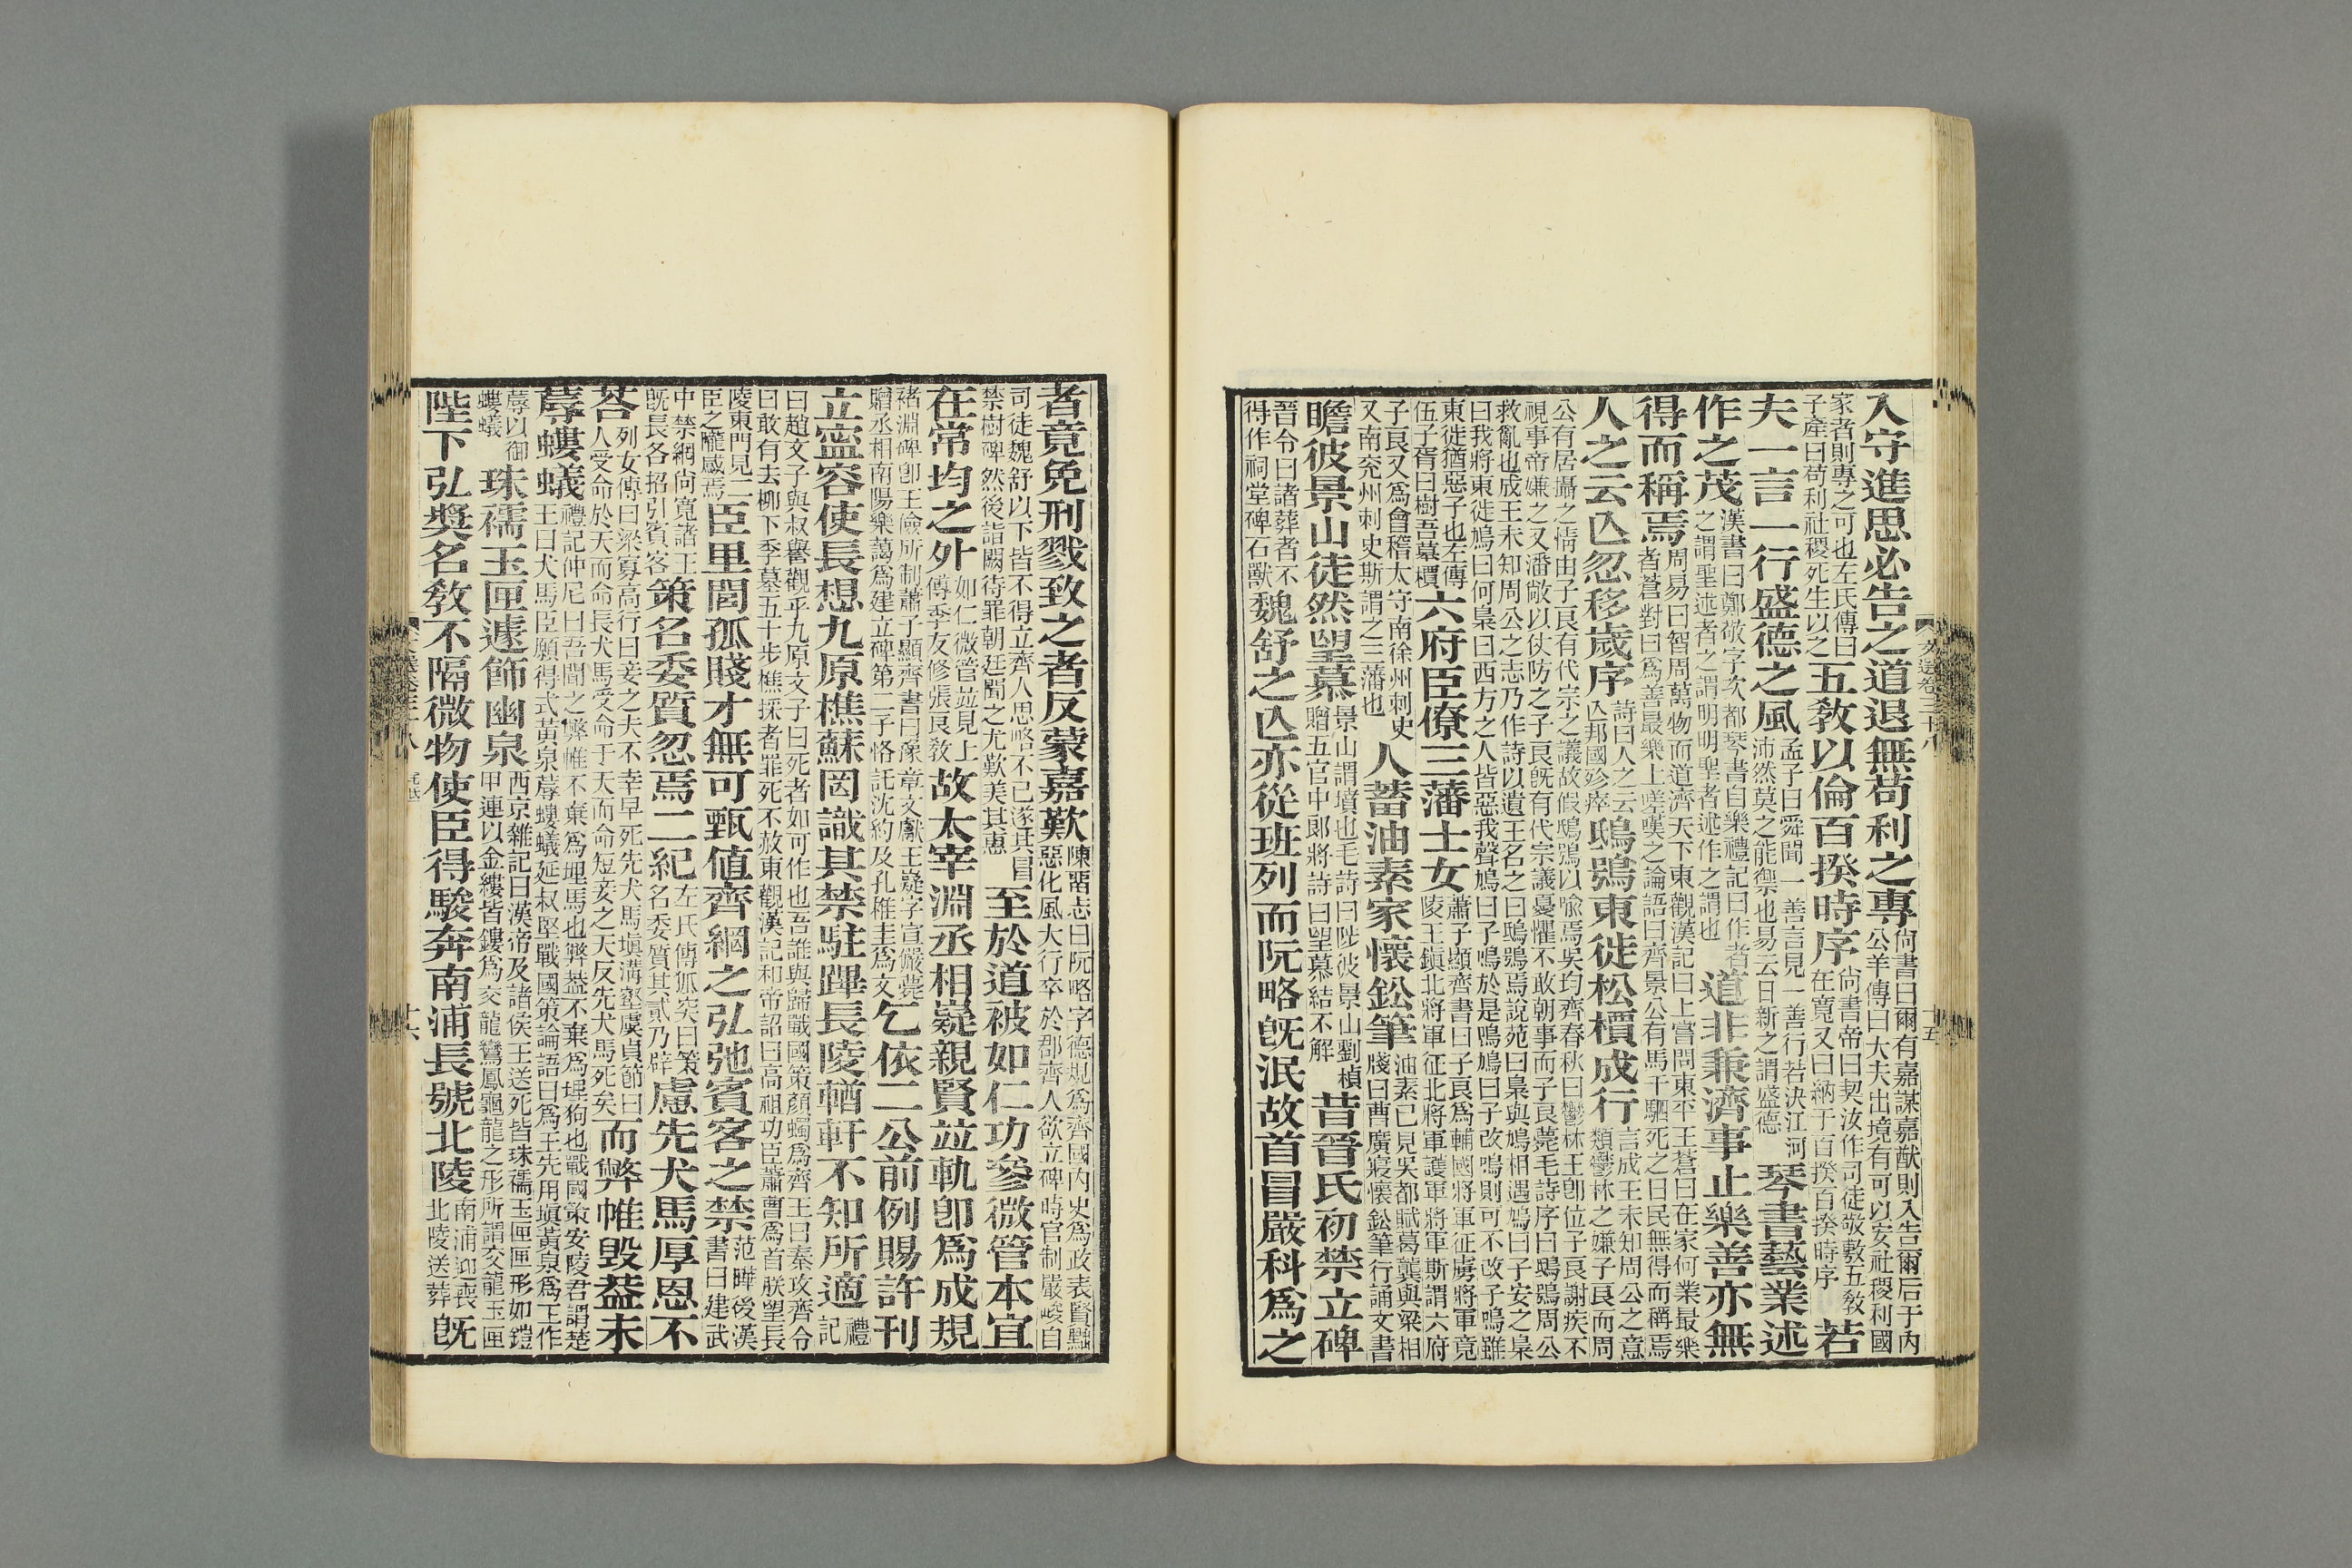 入守進思必告之道退無苟利之專
尚書曰爾有嘉謀嘉猷則入告爾后于內
公羊傳曰大夫出境有可以安社稷利國
家者則專之可也左氏傳曰
子產曰苟利社稷死生以之
五教以倫百揆時序
尚書帝曰契汝作司徒敬敷五教
在寬又曰納于百揆百揆時序
若
夫一言一行盛德之風
孟子曰舜聞一善言見一善行若決江河
沛然莫之能禦也易云日新之謂盛德
琴書藝業述
作之茂
漢書曰鄭敬字次都琴書自樂禮記曰作者
之謂聖述者之謂明明聖者述作之謂也
道非兼濟事止樂善亦無
得而稱焉
周易曰智周萬物而道濟天下東觀漢記曰上嘗問東平王蒼曰在家何業最樂
者蒼對曰爲善最樂上嗟嘆之論語曰齊景公有馬千駟死之日民無得而稱焉
人之云亾忽移歲序
詩曰人之云
亾邦國殄瘁
鴟鴞東徙松檟成行
言成王未知周公之意
類鬱林之嫌子良而周
公有居攝之情由子良有代宗之議故假鴟鴞以喻焉吳均齊春秋曰鬱林王卽位子良謝疾不
視事帝嫌之又潘敞以仗防之子良旣有代宗議憂懼不敢朝事而子良薨毛詩序曰鴟鴞周公
救亂也成王未知周公之志乃作詩以遺王名之曰鴟鴞焉說苑曰梟與鳩相遇鳩曰子安之梟
曰我將東徙鳩曰何梟曰西方之人皆惡我聲鳩曰子鳴於是鳴鳩曰子改鳴則可不改子鳴雖
東徙猶惡子也左傳
伍子胥曰樹吾墓檟
六府臣僚三藩士女
蕭子顯齊書曰子良爲輔國將軍征虜將軍竟
陵王鎮北將軍征北將軍護軍將軍斯謂六府
子良又爲會稽太守南徐州刺史
又南兗州刺史斯謂之三藩也
人蓄油素家懷鉛筆
油素已見吳都賦葛龔與梁相
牋曰曹廣寤懷鉛筆行誦文書
瞻彼景山徒然望慕
景山謂墳也毛詩曰陟彼景山劉楨
贈五官中郎將詩曰望慕結不解
昔晉氏初禁立碑
晉令曰諸葬者不
得作祠堂碑石獸
魏舒之亾亦從班列而阮略旣泯故首冒嚴科爲之
者竟免刑戮致之者反蒙嘉歎
陳畱志曰阮略字德規爲齊國內史爲政表賢黜
惡化風大行卒於郡齊人欲立碑時官制嚴峻自
司徒魏舒以下皆不得立齊人思略不已遂共冒
禁樹碑然後詣闕待罪朝廷聞之尤歎美其惠
至於道被如仁功參微管本宜
在常均之外
如仁微管竝見上
傅季友修張良敎
故太宰淵丞相嶷親賢竝軌卽爲成規
褚淵碑卽王儉所制蕭子顯齊書曰豫章文獻王嶷字宣儼薨
贈丞相南陽樂藹爲建立碑第二子恪託沈約及孔稚圭爲文
乞依二公前例賜許刊
立寍容使長想九原樵蘇罔識其禁駐蹕長陵輶軒不知所適
禮
記
曰趙文子與叔譽觀乎九原文子曰死者如可作也吾誰與歸戰國策顏蠋爲齊王曰秦攻齊令
曰敢有去柳下季墓五十步樵採者罪死不赦東觀漢記和帝詔曰高祖功臣蕭曹爲首朕望長
陵東門見二
臣之壠感焉
臣里閭孤賤才無可甄値齊網之弘弛賓客之禁
范曄後漢
書曰建武
中禁網尚寬諸王
旣長各招引賓客
策名委質忽焉二紀
左氏傳狐突曰策
名委質其貳乃辟
慮先犬馬厚恩不
荅
列女傳曰梁寡高行曰妾之夫不幸早死先犬馬塡溝壑虞貞節曰
人受命於天而命長犬馬受命于天而命短妾之夫反先犬馬死矣
而弊帷毀葢未
蓐螻蟻
禮記仲尼曰吾聞之弊帷不棄爲埋馬也弊葢不棄爲埋狗也戰國策安陵君謂楚
王曰犬馬臣願得式黃泉蓐螻蟻延叔堅戰國策論語曰爲王先用塡黃泉爲王作
蓐以御
螻蟻
珠襦玉匣遽飾幽泉
西京雜記曰漢帝及諸侯王送死皆珠襦玉匣匣形如鎧
甲連以金縷皆鏤爲交龍鸞鳳龜龍之形所謂交龍玉匣
陛下弘獎名敎不隔微物使臣得駿奔南浦長號北陵
南浦迎喪
北陵送葬
旣